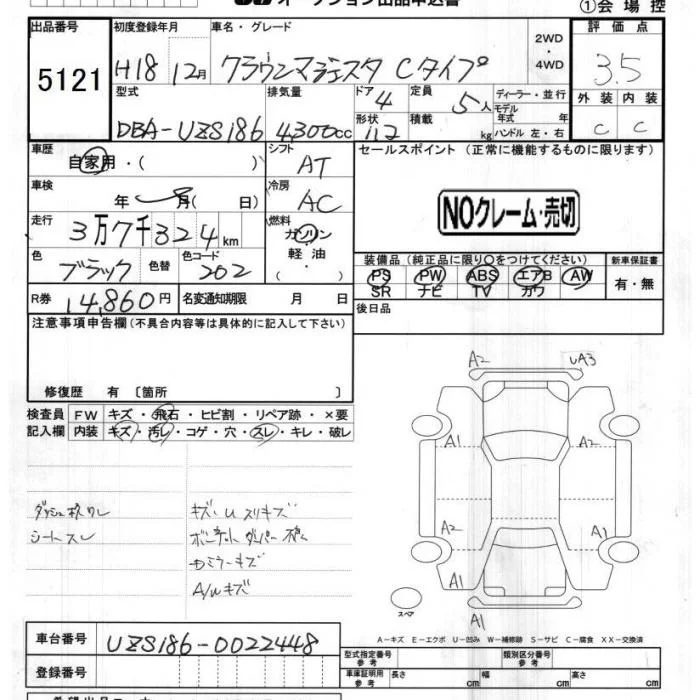 オークション出品申込書
①会場控
出品番号 初度登録年月 車名・グレード 2WD・4WD 評価点
5121 H18 12月 クラウンマジェスタ Cタイプ 3.5
型式 排気量 ドア 4 定員 5人 ディーラー・並行 外装 内装
DBA-UZS186 4300cc 形状 積載 kg モデル年式 年 ハンドル 左・右 C C
車歴 自家用・( ) シフト AT セールスポイント (正常に機能するものに限ります)
車検 年 月( 日) 冷房 AC
NOクレーム・売切
走行 3万7千324km 燃料 ガソリン 軽油・( )
色 ブラック 色替 色コード 202
装備品(純正品に限り○をつけてください) 新車保証書
PS PW ABS エアB AW 有・無
SR ナビ TV カワ
R券 14,860円 名変通知期限 月 日
後日品
注意事項申告欄(不具合内容等は具体的に記入して下さい)
修復歴 有 〔箇所 〕
検査員 FW キズ・飛石・ヒビ割・リペア跡・×要
記入欄 内装 キズ・汚レ・コゲ・穴・スレ・キレ・破レ
A2 UA3
A1 A2
A2 A1
A1 A1
A1
キズ・U スリキズ
シートスレ
ドミラーキズ
A/Wキズ
スペア
A-キズ E-エクボ U-凹み W-補修跡 S-サビ C-腐食 XX-交換済
車台番号 UZS186-0022448
型式指定番号 参考 類別区分番号 参考
登録番号
車庫証明用 参考 長さ cm 幅 cm 高さ cm